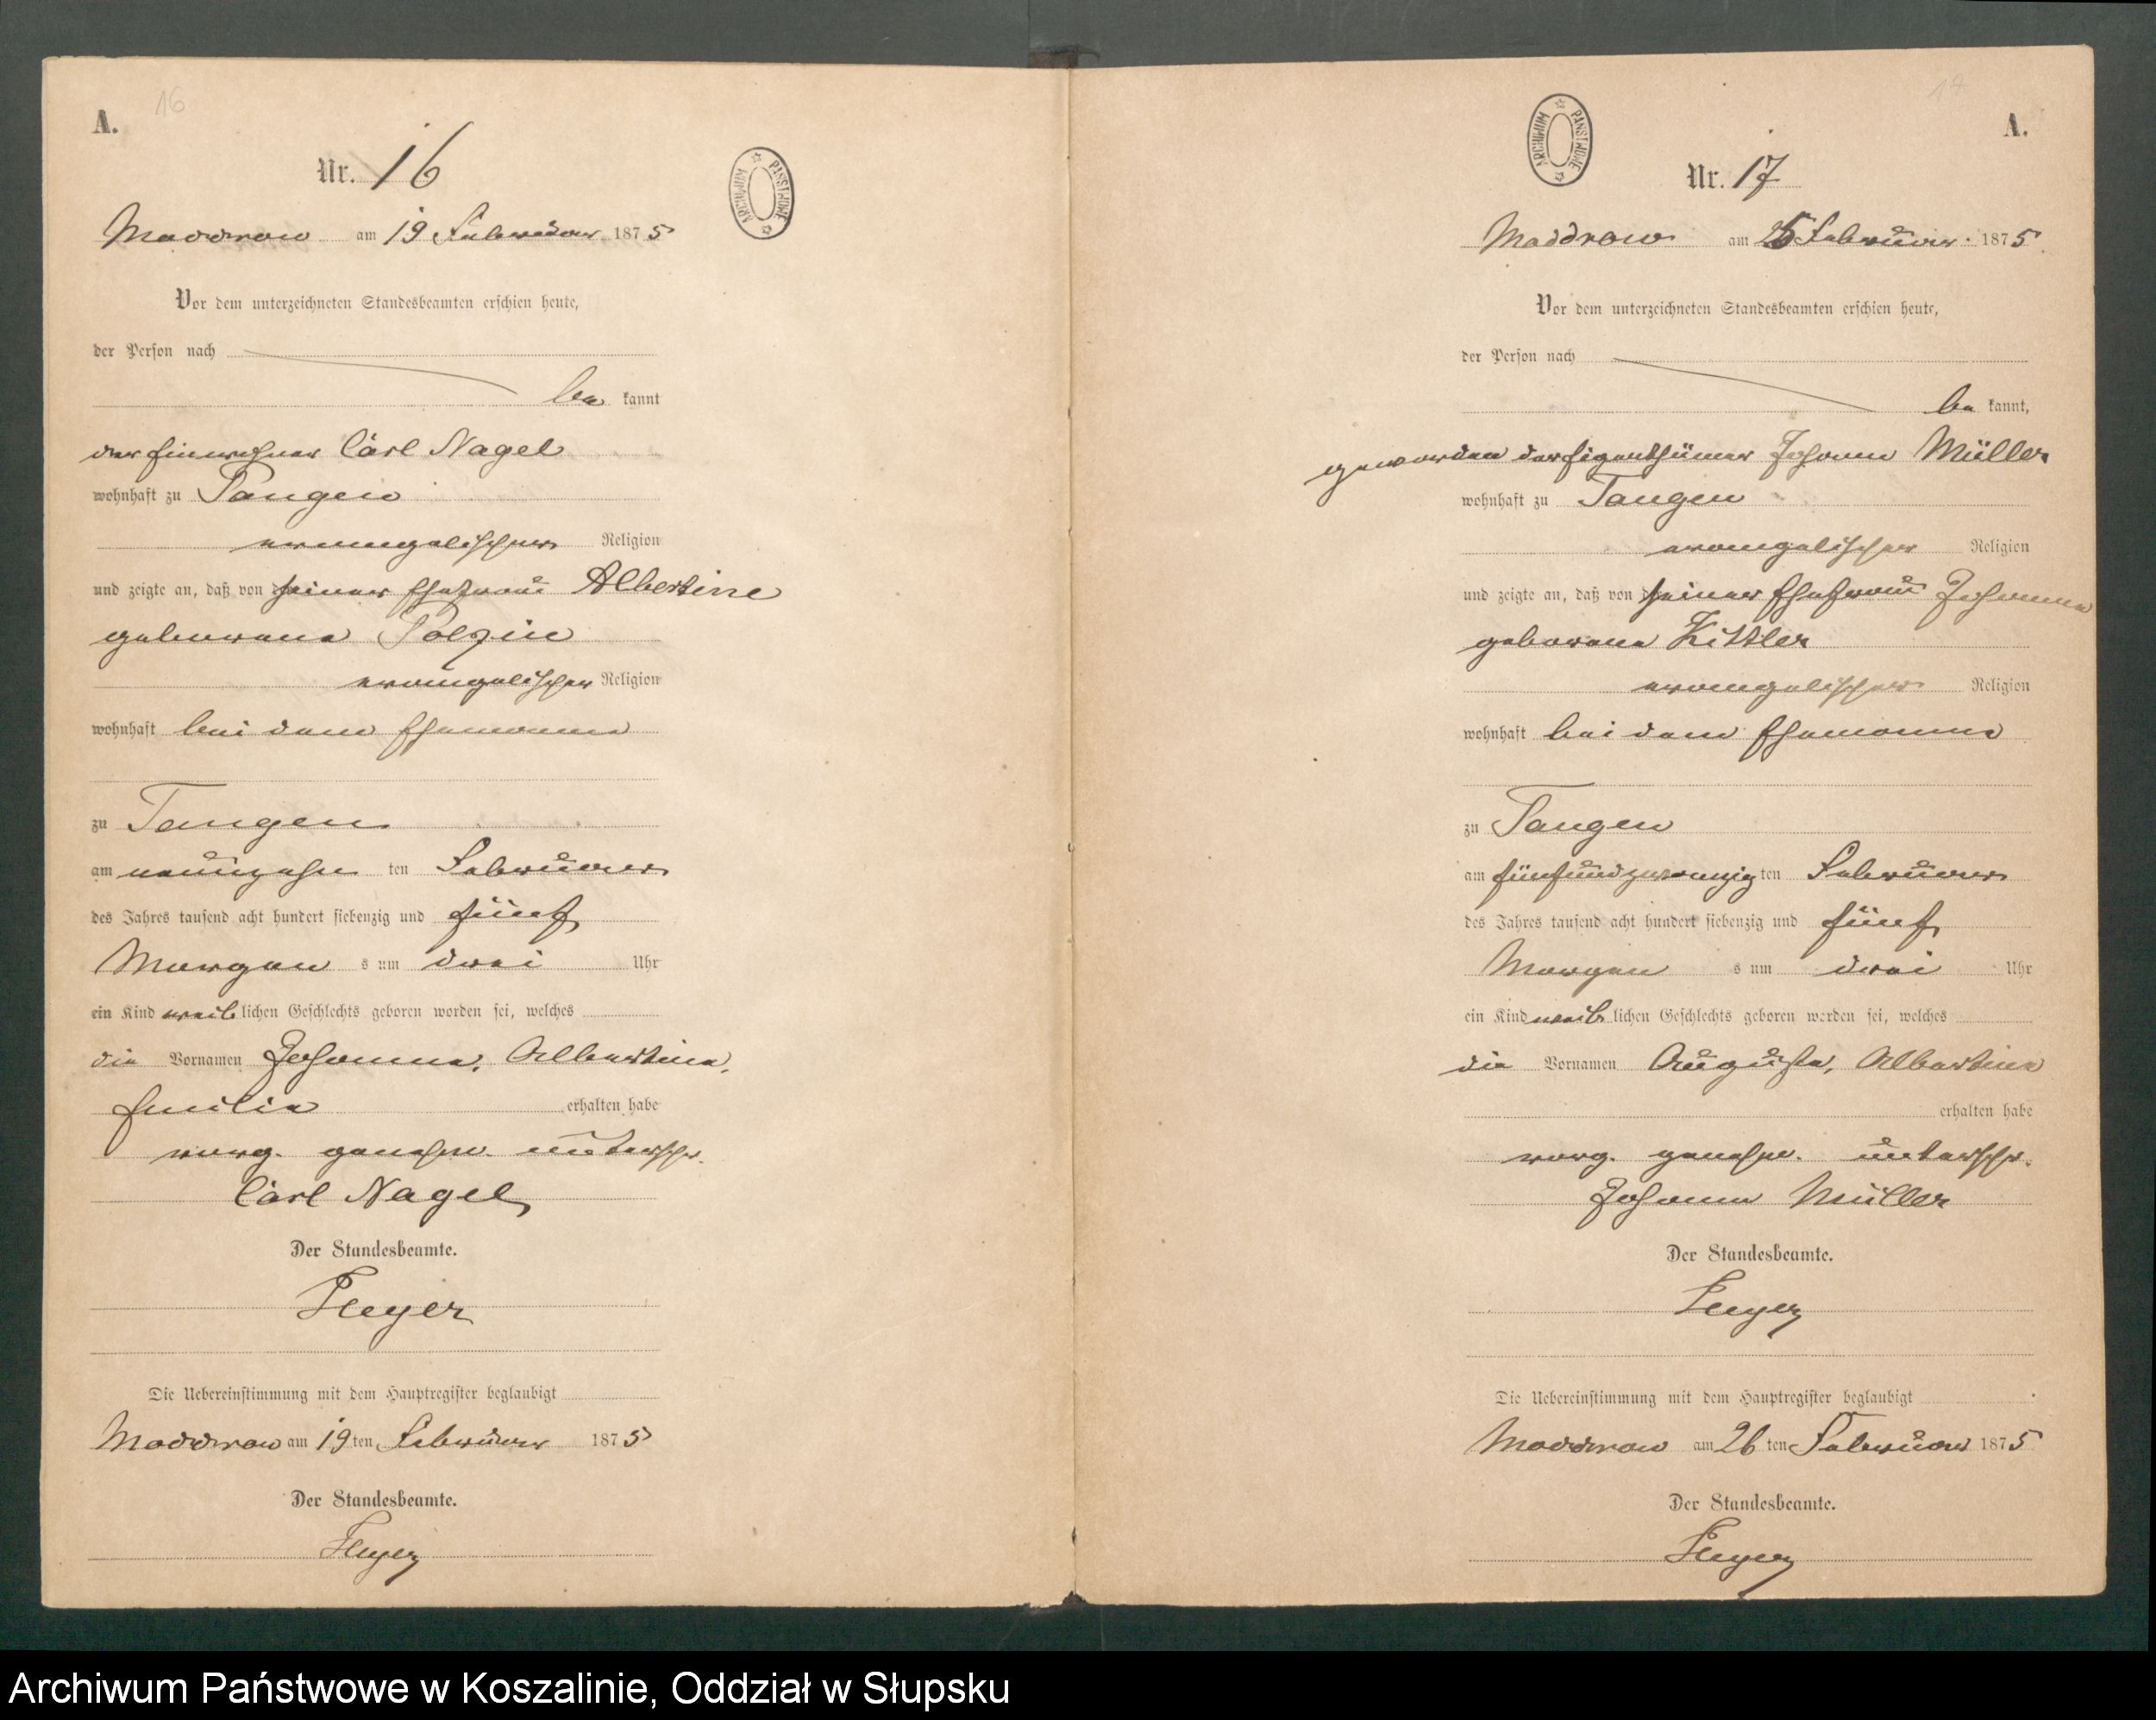 16
A.
Nr. 16
ARCHIWUM PAŃSTWOWE
Maddrow am 19 Februar 1875
Vor dem unterzeichneten Standesbeamten erschien heute,
der Person nach
be kannt
der Einwohner Carl Nagel
wohnhaft zu Tangen
evangelischer Religion
und zeigte an, daß von seiner Ehefrau Albertine
geborene Polzin
evangelischer Religion
wohnhaft bei dem Ehemanne
zu Tangen
am neunzehn ten Februar
des Jahres tausend acht hundert siebenzig und fünf
Morgen s um drei Uhr
ein Kind weiblichen Geschlechts geboren worden sei, welches
die Vornamen Johanna, Albertine,
Emilie erhalten habe
vorg. genehm. unterschr.
Carl Nagel
Der Standesbeamte.
Heyer
Die Uebereinstimmung mit dem Hauptregister beglaubigt
Maddrow am 19 ten Februar 1875
Der Standesbeamte.
Heyer
17
A.
ARCHIWUM PAŃSTWOWE
Nr. 17
Maddrow am Februar 1875
Vor dem unterzeichneten Standesbeamten erschien heute,
der Person nach
be kannt,
geworden der Eigenthümer Johann Müller
wohnhaft zu Tangen
evangelischer Religion
und zeigte an, daß von seiner Ehefrau Johanna
geborene Kittler
evangelischer Religion
wohnhaft bei dem Ehemanne
zu Tangen
am fünfundzwanzig ten Februar
des Jahres tausend acht hundert siebenzig und fünf
Morgen s um drei Uhr
ein Kind weiblichen Geschlechts geboren worden sei, welches
die Vornamen Auguste, Albertine
erhalten habe
vorg. genehm. unterschr.
Johann Müller
Der Standesbeamte.
Heyer
Die Uebereinstimmung mit dem Hauptregister beglaubigt
Maddrow am 26 ten Februar 1875
Der Standesbeamte.
Heyer
Archiwum Państwowe w Koszalinie, Oddział w Słupsku